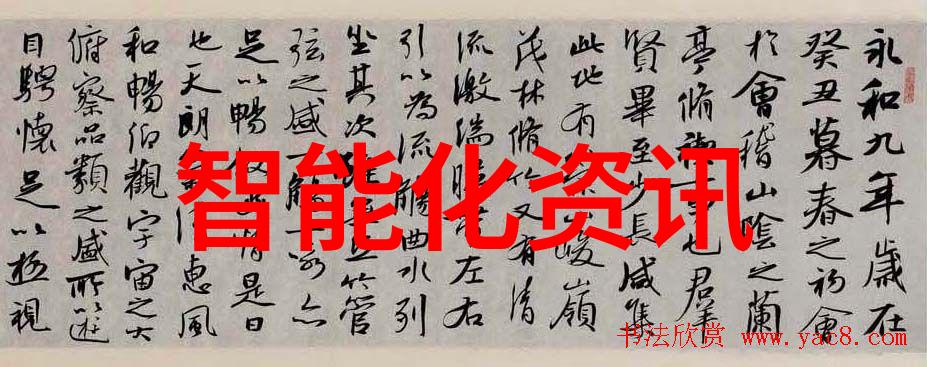 永和九年歲在
癸丑暮春之初會
於會稽山陰之蘭
亭脩禊事也群
賢畢至少長咸集
此地有峻嶺
茂林脩竹又有清
流激湍暎帶左右
引以為流觴曲水列
坐其次雖無竹管
弦之盛一觴一詠亦
足以暢敘幽情是日
也天朗氣清惠風
和暢仰觀宇宙之大
俯察品類之盛所以遊
目騁懷足以極視
智能化资讯
书法欣赏 www.yac8.com